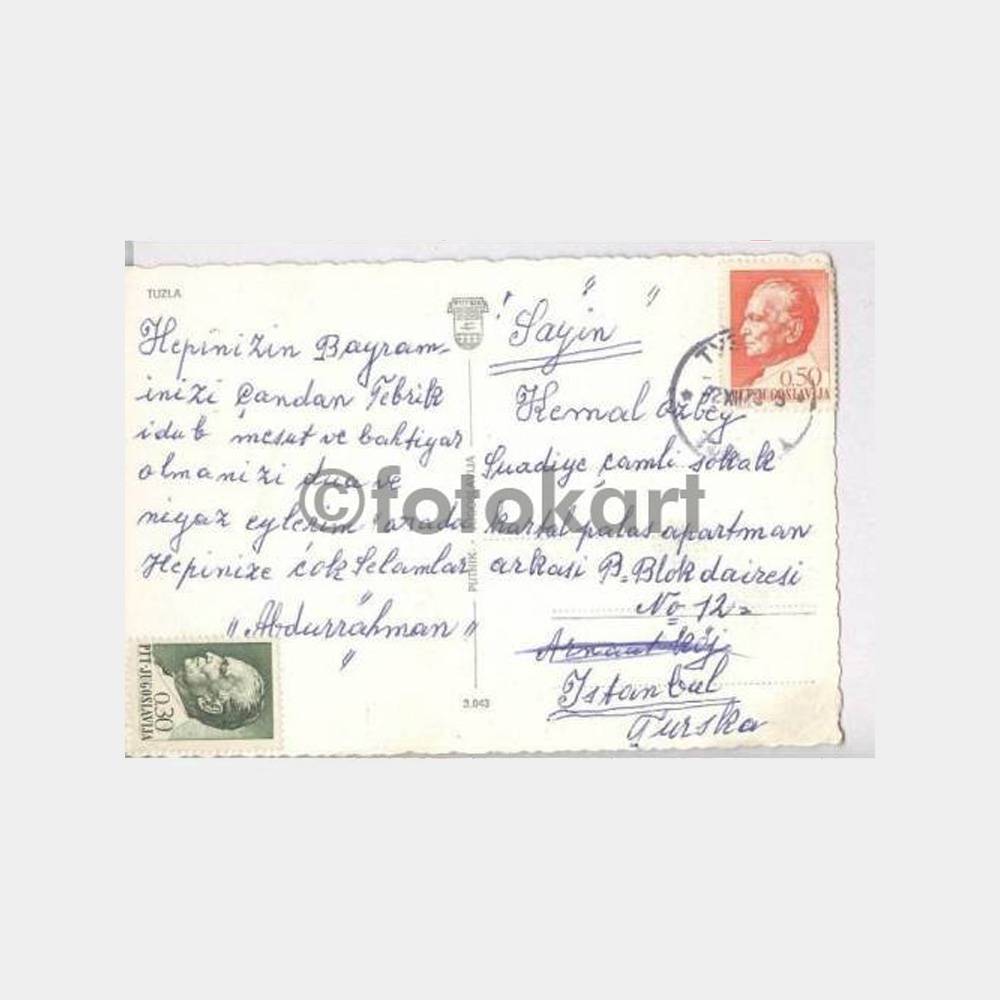 TUZLA
Hepinizin Bayram-
inizi Çandan Tebrik
idub mesut ve bahtiyar
olmanizi dua ve
niyaz eylerim arada
Hepinize ćok Selamlar
"Abdurráhman"
PTT-JUGOSLAVIJA
0.30
PUTNIK - JUGOSLAVIJA
3.043
"Sayin"
Kemal Özbey
Suadiye çamlı sokak
kartal palas apartman
arkasi B=Blok dairesi
No 12=
Arnaut Köj
Istanbul
Turska
0.50
PTT-JUGOSLAVIJA
©fotokart